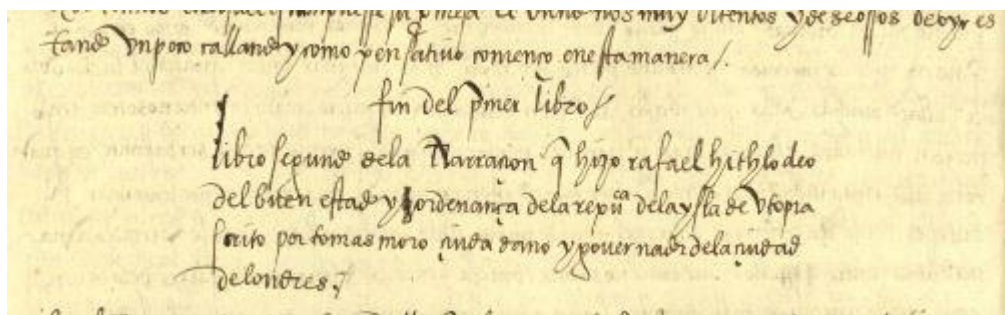 viendonos muy atentos y deseosos de oyr es
tando un poco callando y como pensativo començo en esta manera /.
fin del pmer libro /
libro segundo dela Narraçion q hizo rafael hithlodeo
del buen estado y hordenança dela repuca dela ysla de Utopia
scrito por tomas moro çiudadano y governador dela ciudad
de londres.